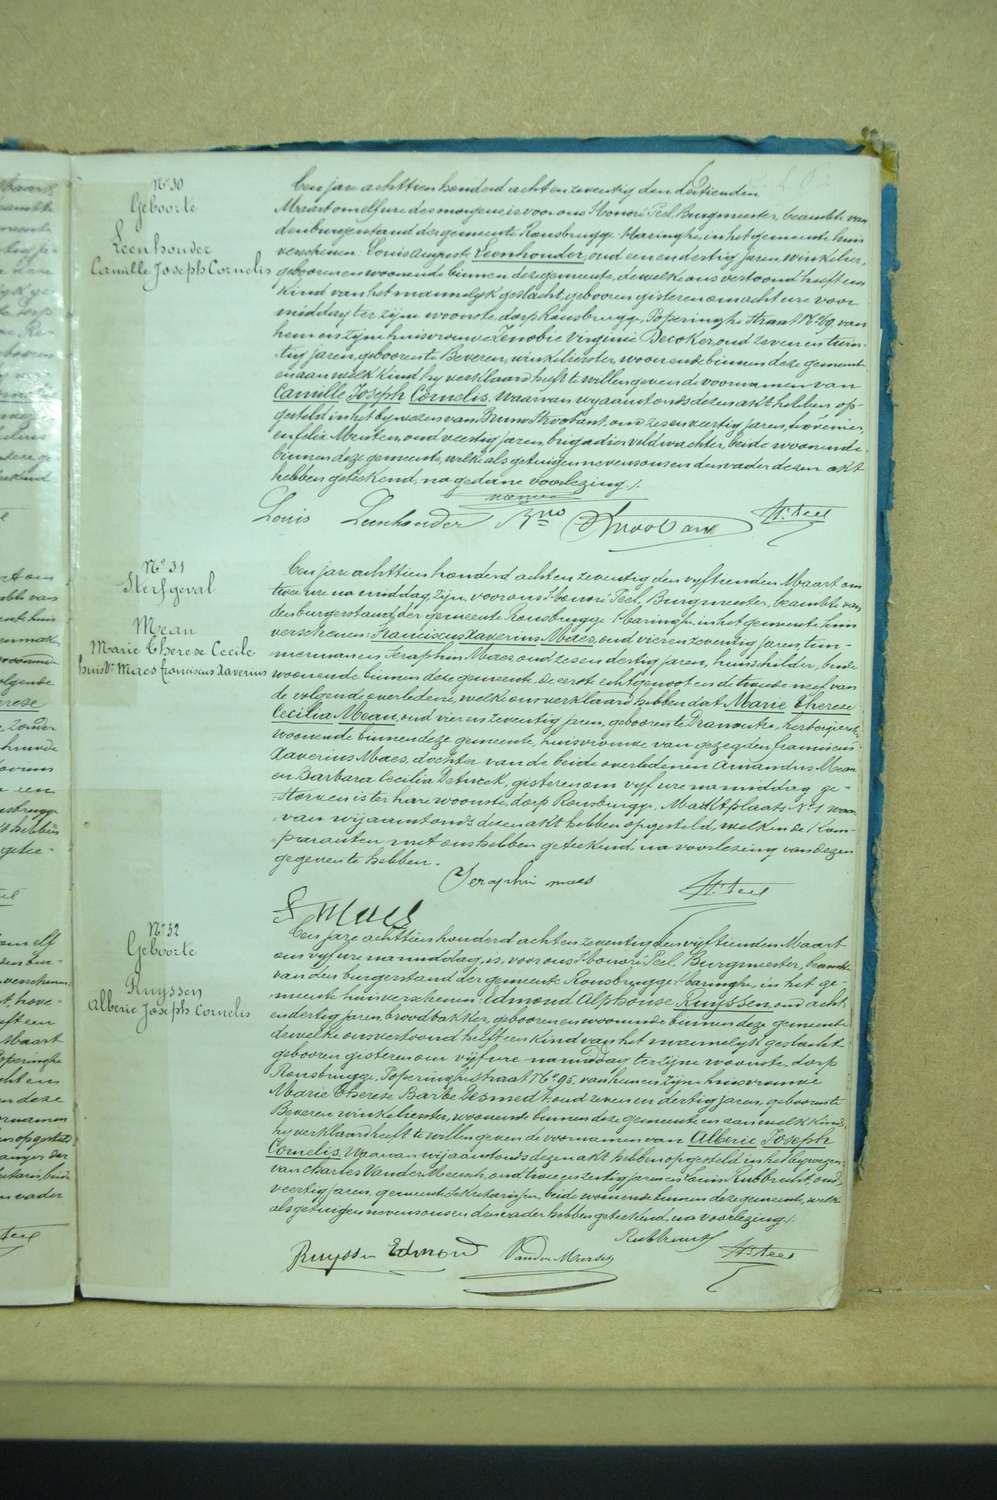 N° 30
Geboorte
Leenhouder
Camille Joseph Cornelis
Een jare achttien honderd acht en zeventig den dertienden
Maart om elf ure des morgens, is voor ons Honoré Peel, Burgmeester, beambte van
den burgerstand der gemeente Rousbrugge-Haringhe, in het gemeente huis
verschenen: Louis Auguste Leenhouder, oud een en dertig jaren, winkelier,
geboren en woonende binnen deze gemeente, dewelke ons vertoond heeft een
kind van het mannelyk geslacht, geboren gisteren om acht ure voor
middag ter zyne woonste, dorp Rousbrugge, Poperinghe straat N° 29, van
hem en zyne huisvrouwe Zenobie Virginie Decoker, oud zeven en twin-
tig jaren, geboren te Beveren, winkelierster, woonende binnen deze gemeente
en aan welk kind hy verklaard heeft te willen geven de voornamen van
Camille Joseph Cornelis. Waarvan wy aanstonds dezen akt hebben op-
gesteld in het bywezen van Bruno Stroobant, oud zes en veertig jaren, hovenier,
en felix Merten, oud veertig jaren, brigadier veldwachter, beide woonende
binnen deze gemeente, welke als getuigen nevens ons en den vader dezen akt
hebben geteekend, na gedane voorlezing ./.
Louis Leenhouder Bno Stroobant H. Peel
N° 31
Sterfgeval
Mean
Marie Therese Cecile
huisv. Maes franciscus Xaverius
Een jare achttien honderd acht en zeventig den vyftienden Maart om
twee ure na middag, zyn, voor ons Honoré Peel, Burgmeester, beambte van
den burgerstand der gemeente Rousbrugge-Haringhe, in het gemeente huis
verschenen: Franciscus Xaverius Maes, oud vier en zeventig jaren, tim-
merman en Seraphin Maes, oud zes en dertig jaren, huisschilder, beide
woonende binnen deze gemeente, de eerste echtgenoot en de tweede neef van
de volgende overledene, welke ons verklaard hebben dat Marie Therese
Cecilia Mean, oud vier en zeventig jaren, geboren te Dranoutre, herbergierster
woonende binnen deze gemeente, huisvrouwe van gezegden franciscus
Xaverius Maes, dochter van de beide overledenen Amandus Mean
en Barbara Cecilia, gisteren om vyf ure na middag ge-
storven is ter hare woonste, dorp Rousbrugge, Marktplaats N° 1, waar
van wy aanstonds dezen akt hebben opgesteld, welken de kom-
paranten met ons hebben geteekend na voorlezing van dezen
gegeven te hebben.
Seraphin maes H. Peel
F maes
N° 32
Geboorte
Ruyssen
Alberic Joseph Cornelis
Een jare achttien honderd acht en zeventig den vyftienden Maart
om vyf ure na middag, is, voor ons Honoré Peel, Burgmeester, beambte
van den burgerstand der gemeente Rousbrugge-Haringhe, in het ge-
meente huis verschenen: Edmond Alphonse Ruyssen, oud acht
en dertig jaren, broodbakker, geboren en woonende binnen deze gemeente
dewelke ons vertoond heeft een kind van het mannelyk geslacht,
geboren gisteren om vyf ure na middag ter zyne woonste, dorp
Rousbrugge, Poperinghestraat N° 95, van hem en zyne huisvrouwe
Marie Therese Barbe Desmedt, oud zeven en dertig jaren, geboren te
Beveren, winkelierster, woonende binnen deze gemeente en aan welk kind
hy verklaard heeft te willen geven de voornamen van Alberic Joseph
Cornelis. Waarvan wy aanstonds dezen akt hebben opgesteld in het bywezen
van charles Vander Meersch, oud twee en zestig jaren en Louis Rubbrecht, oud
veertig jaren, gemeente sekretaris, beide woonende binnen deze gemeente, welke
als getuigen nevens ons en den vader hebben geteekend, na voorlezing ./.
Ruyssen Edmond Vander Meersch Rubbrecht H. Peel